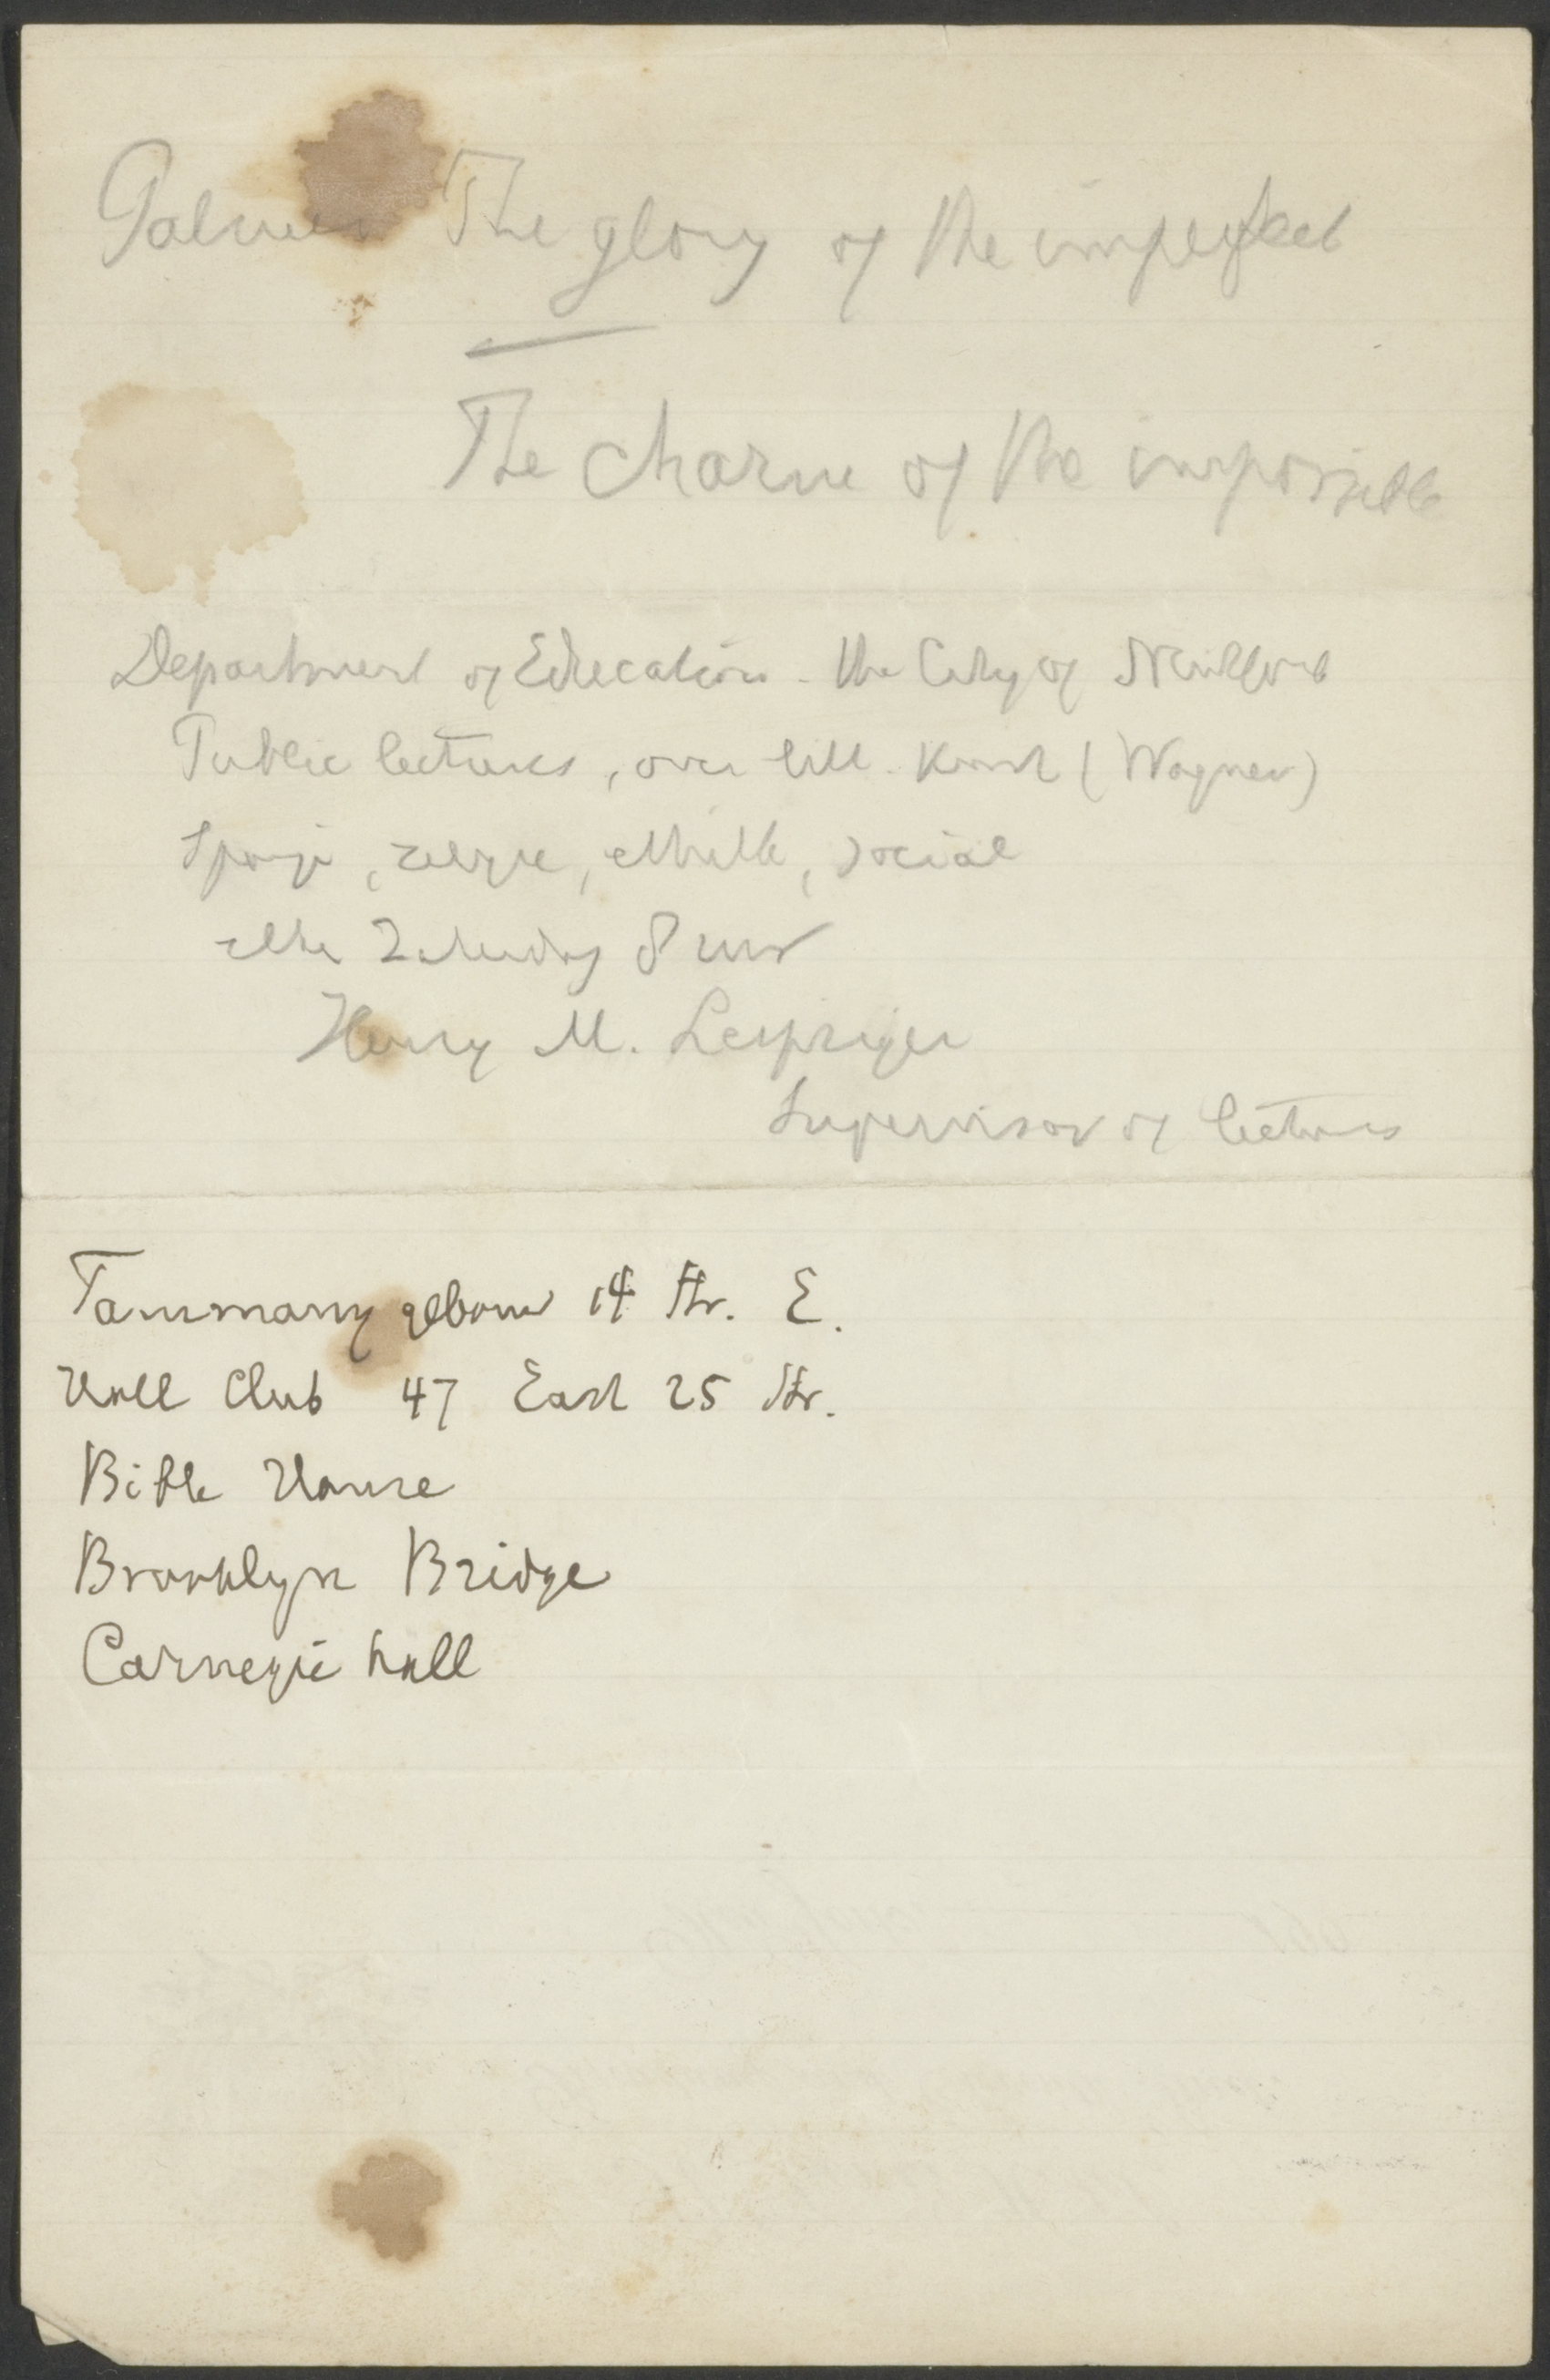 Palmer The glory of the imperfect
The charme of the impossible
Department of Education. the City of
Public lectures, over litt. Kunst (Wagner)
religie, ethiek, social
elke Zaterdag 8 uur
Henry M. Leipziger
Supervisor of lectures
Tammany gebouw 14 Str. E.
Hull Club 47 East 25 Str.
Bible House
Brooklyn Bridge
Carnegie hall